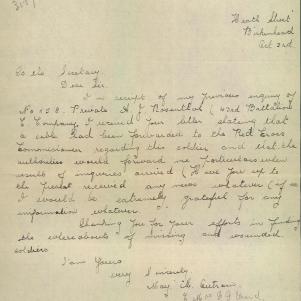 Heath Street
Birkenhead
Oct 2nd
To the Secretary
Dear Sir,
In receipt of my previous inquiry of
No 158 Private A J Rosenthal (43rd Battalion
Company I received your letter stating that
a cable had been forwarded to the Red Cross
Commissioner regarding this soldier and that the
authorities would forward me particulars when
result of inquiries arrived (Have you up to
the present received any news whatever (if so
I would be extremely grateful for any
information whatever
Thanking you for your efforts in finding
the whereabouts of missing and wounded
soldiers
I am Yours
very Sincerely
May
Mrs